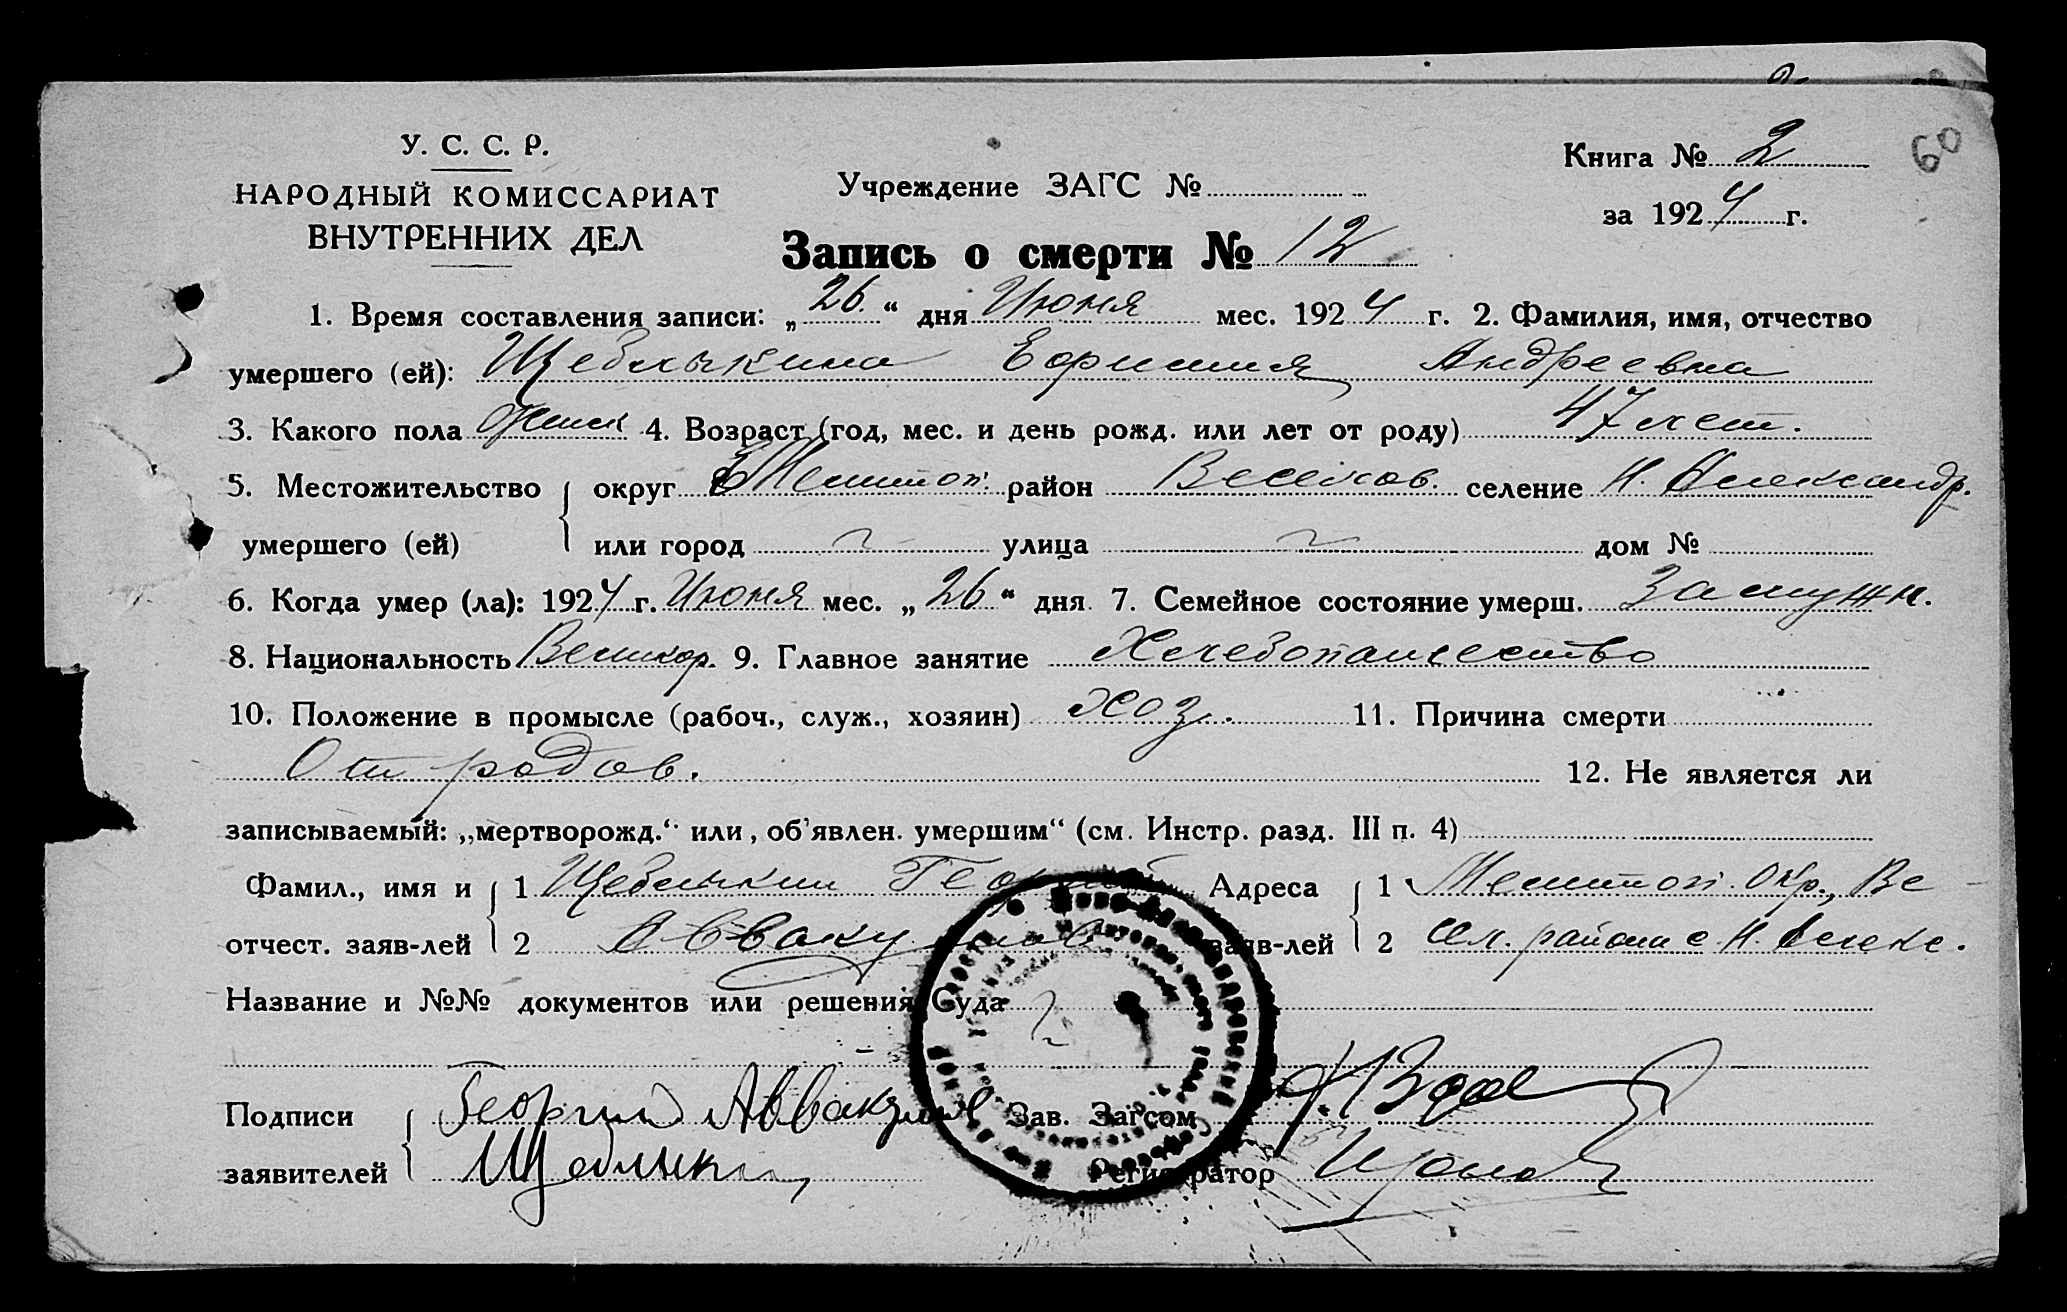 60
У. С. С. Р.
НАРОДНЫЙ КОМИССАРИАТ
ВНУТРЕННИХ ДЕЛ
Учреждение ЗАГС №
Книга № 2
за 1924 г.
Запись о смерти № 12
1. Время составления записи: „26“ дня Июня мес. 1924 г. 2. Фамилия, имя, отчество
умершего (ей): Щеблыкина Ефимия Андреевна
3. Какого пола женск 4. Возраст (год, мес. и день рожд. или лет от роду) 47 лет.
5. Местожительство округ Мелитоп. район Веселов. селение Н. Александр.
умершего (ей) или город улица дом №
6. Когда умер (ла): 1924 г. Июня мес. „26“ дня 7. Семейное состояние умерш. Замужн.
8. Национальность Великор. 9. Главное занятие Хлебопашество
10. Положение в промысле (рабоч., служ., хозяин) Хоз. 11. Причина смерти
От родов. 12. Не является ли
записываемый: „мертворожд.“ или „об'явлен. умершим“ (см. Инстр. разд. III п. 4)
Фамил., имя и 1 Щеблыкин Георгий Адреса 1 Мелитоп. Окр., Ве-
отчест. заяв-лей 2 Аввакумов заяв-лей 2 сел. района с. Н. Алекс.
Название и №№ документов или решения Суда
Подписи Георгий Аввакумов Зав. Загсом
заявителей Щеблыкин Регистратор